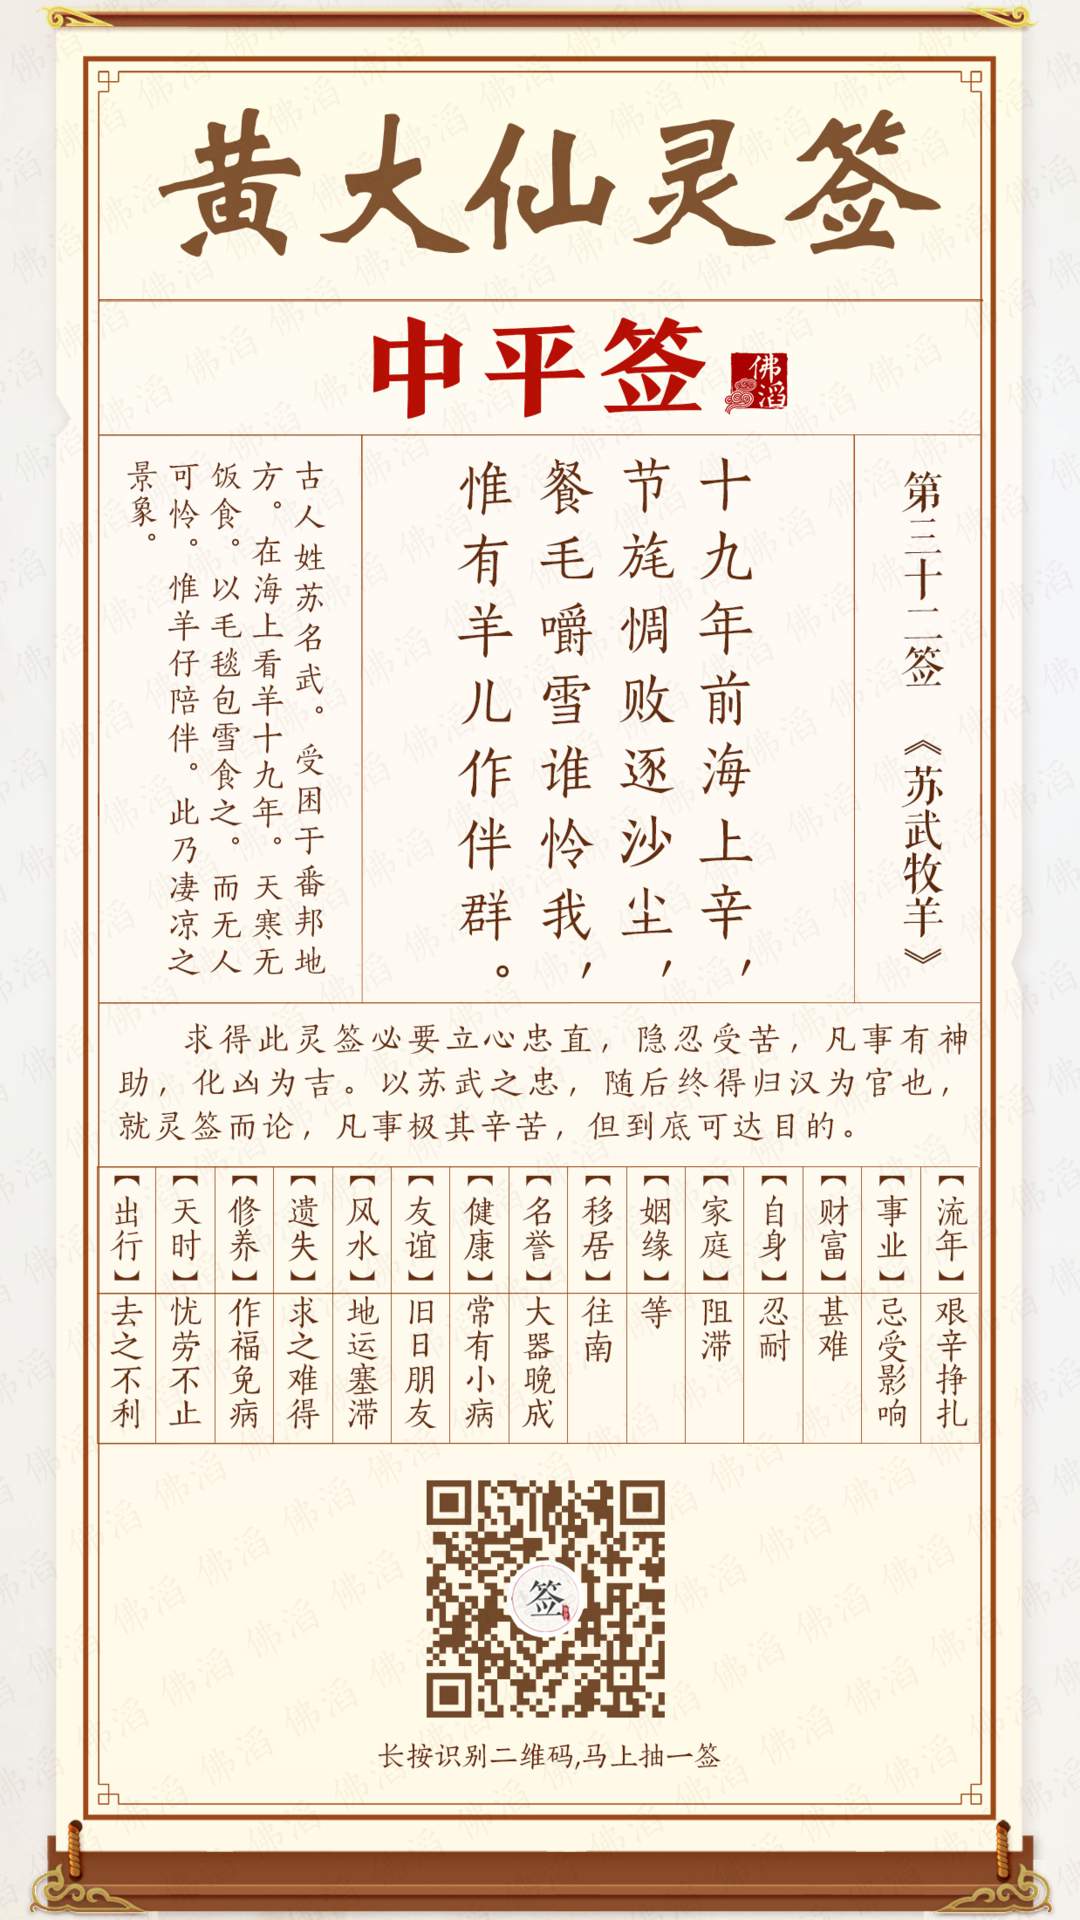 黄大仙灵签
中平签
佛滔
第三十二签 《苏武牧羊》
十九年前海上辛，
节旄惆败逐沙尘，
餐毛嚼雪谁怜我，
惟有羊儿作伴群。
古人姓苏名武。受困于番邦地
方。在海上看羊十九年。天寒无
饭食。以毛毯包雪食之。而无人
可怜。惟羊仔陪伴。此乃凄凉之
景象。
求得此灵签必要立心忠直，隐忍受苦，凡事有神
助，化凶为吉。以苏武之忠，随后终得归汉为官也，
就灵签而论，凡事极其辛苦，但到底可达目的。
【流年】艰辛挣扎
【事业】忌受影响
【财富】甚难
【自身】忍耐
【家庭】阻滞
【姻缘】等
【移居】往南
【名誉】大器晚成
【健康】常有小病
【友谊】旧日朋友
【风水】地运塞滞
【遗失】求之难得
【修养】作福免病
【天时】忧劳不止
【出行】去之不利
签
长按识别二维码,马上抽一签